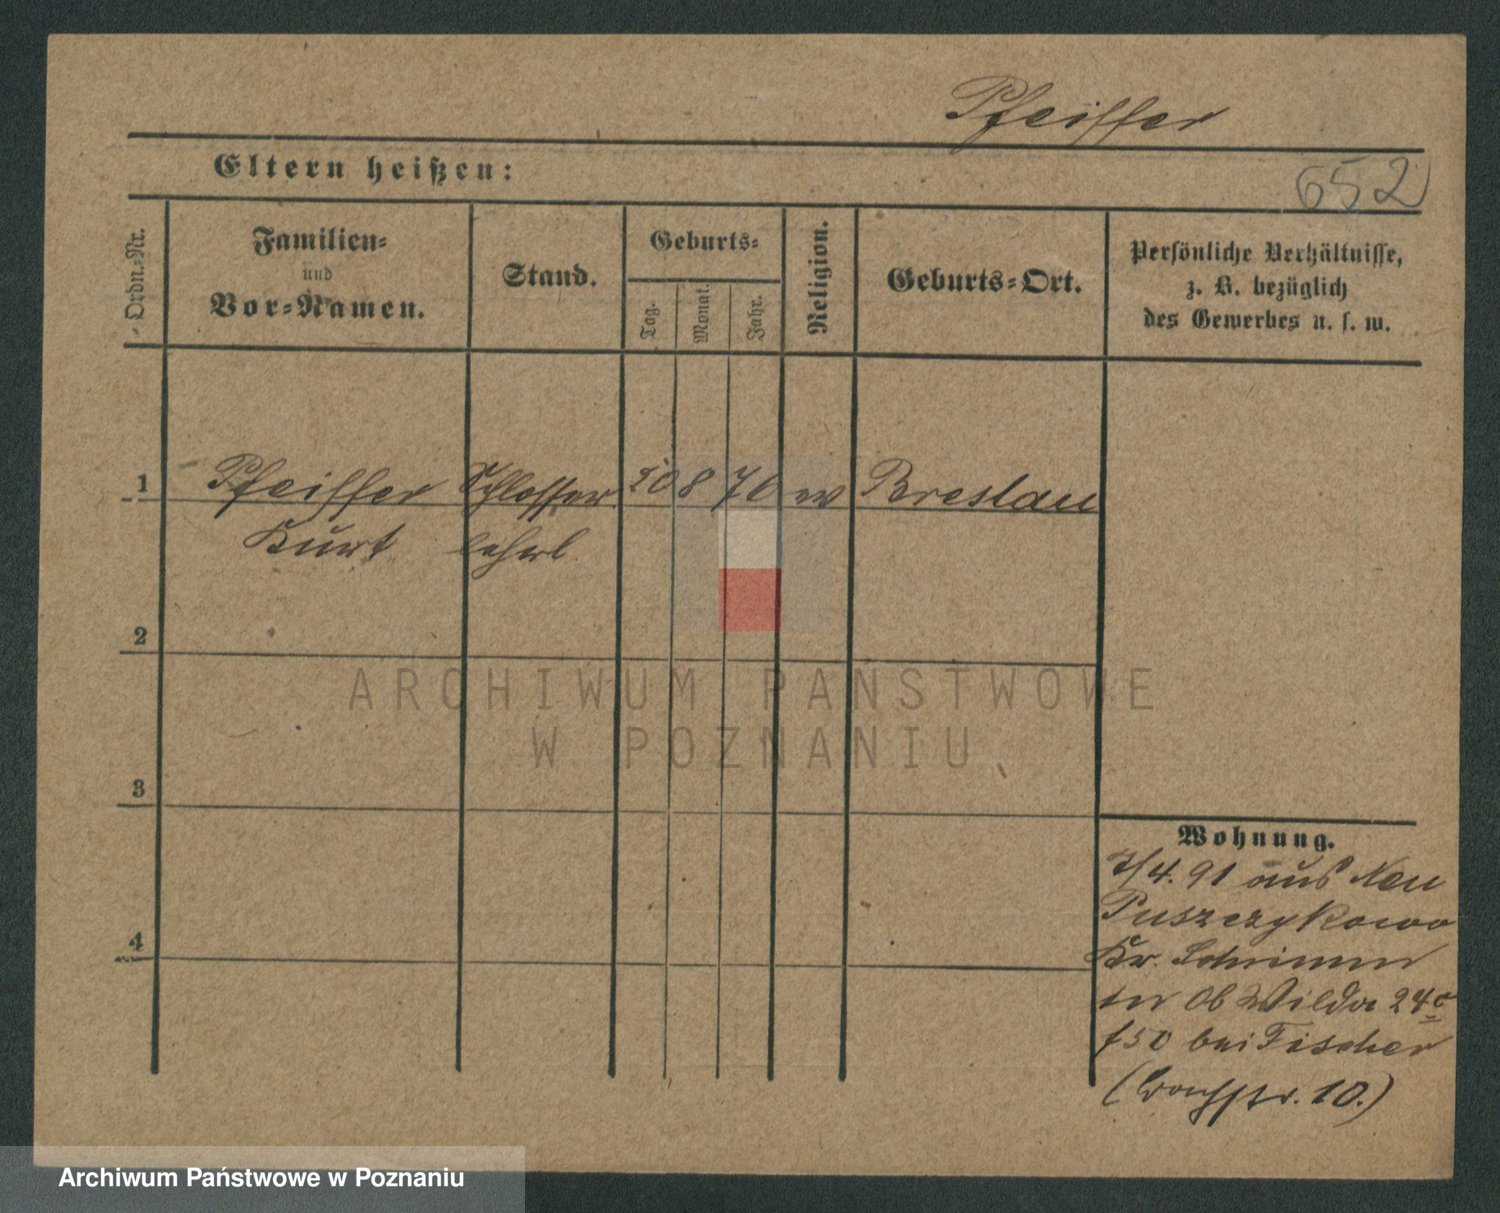 Pfeiffer
Eltern heißen:
652
Ordn.-Nr.
Familien-
und
Vor-Namen.
Stand.
Geburts-
Tag.
Monat.
Jahr.
Religion.
Geburts-Ort.
Persönliche Verhältnisse,
z. B. bezüglich
des Gewerbes u. s. w.
1 Pfeiffer Schlosser 8 Breslau
Kurt lehrl
2
3
4
ARCHIWUM PAŃSTWOWE
W POZNANIU
Wohnung.
4. 91 aus Neu
Puszczykowo
Kr. Schrimm
Ob Wilda 24c
bei Fischer
10.)
Archiwum Państwowe w Poznaniu